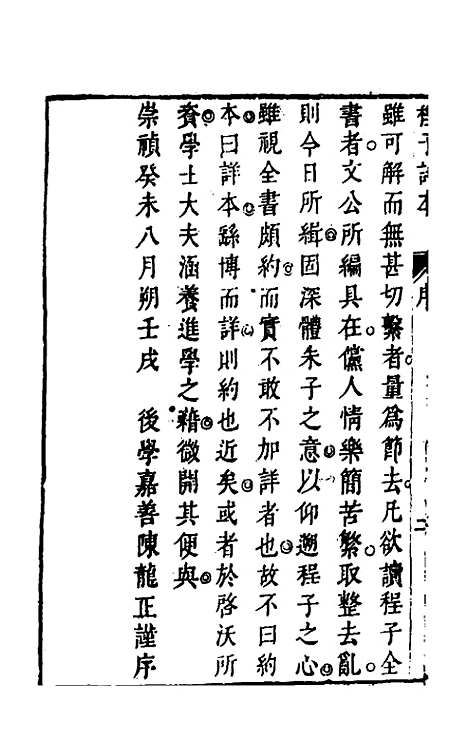 程子詳本 序
雖可解而無甚切繫者量爲節去凡欲讀程子全
書者文公所編具在儻人情樂簡苦繁取整去亂
則今日所緝固深體朱子之意以仰遡程子之心
雖視全書頗約而實不敢不加詳者也故不曰約
本曰詳本繇博而詳則約也近矣或者於啓沃所
資學士大夫涵養進學之藉微開其便與
崇禎癸未八月朔壬戌 後學嘉善陳龍正謹序